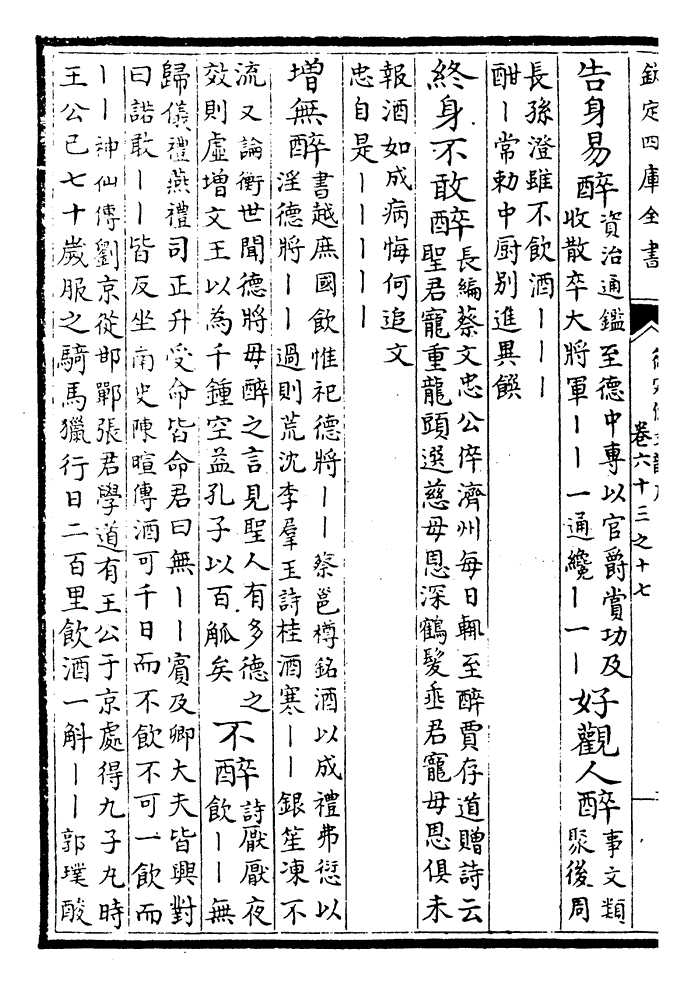 欽定四庫全書
卷六十三之十七
告身易醉
資治通鑑至德中專以官爵賞功及
收散卒大將軍丨丨一通纔丨一丨
好觀人醉
事文類
聚後周
長孫澄雖不飲酒丨丨丨
酣丨常勅中厨别進異饌
終身不敢醉
長編蔡文忠公倅濟州每日輒至醉賈存道贈詩云
聖君寵重龍頭選慈母恩深鶴髮垂君寵母恩俱未
報酒如成病悔何追文
忠自是丨丨丨丨丨
增無醉
書越庶國飲惟祀德將丨丨蔡邕樽銘酒以成禮弗愆以
淫德將丨丨過則荒沈李羣玉詩桂酒寒丨丨銀笙凍不
流又論衡世聞德將毋醉之言見聖人有多德之
效則虛增文王以為千鍾空益孔子以百觚矣
不醉
詩厭厭夜
飲丨丨無
歸儀禮燕禮司正升受命皆命君曰無丨丨賓及卿大夫皆興對
曰諾敢丨丨皆反坐南史陳暄傳酒可千日而不飲不可一飲而
丨丨神仙傳劉京從邯鄲張君學道有王公于京處得九子丸時
王公已七十歲服之騎馬獵行日二百里飲酒一斛丨丨郭璞酸